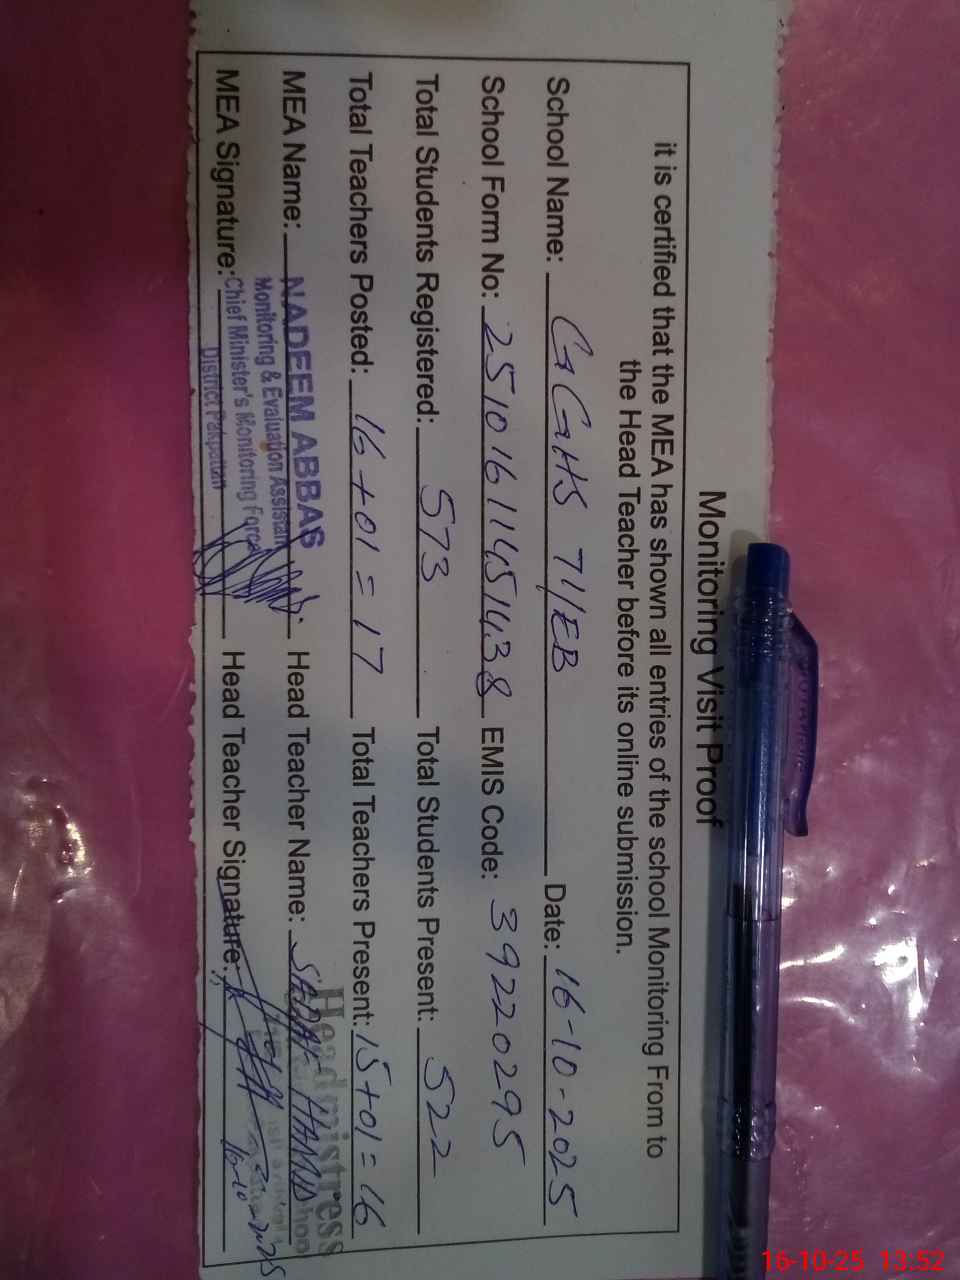 Monitoring Visit Proof
it is certified that the MEA has shown all entries of the school Monitoring From to
the Head Teacher before its online submission.
School Name: GGHS 71/EB Date: 16-10-2025
School Form No: 25101611451438 EMIS Code: 39220295
Total Students Registered: 573 Total Students Present: 522
Total Teachers Posted: 16+01=17 Total Teachers Present: 15+01=16
MEA Name: NADEEM ABBAS Head Teacher Name: HAMID
Monitoring & Evaluation Assistant
Chief Minister's Monitoring Force
District Pakpattan
MEA Signature: Head Teacher Signature:
Headmistress
16-10-2025
16-10-25 13:52